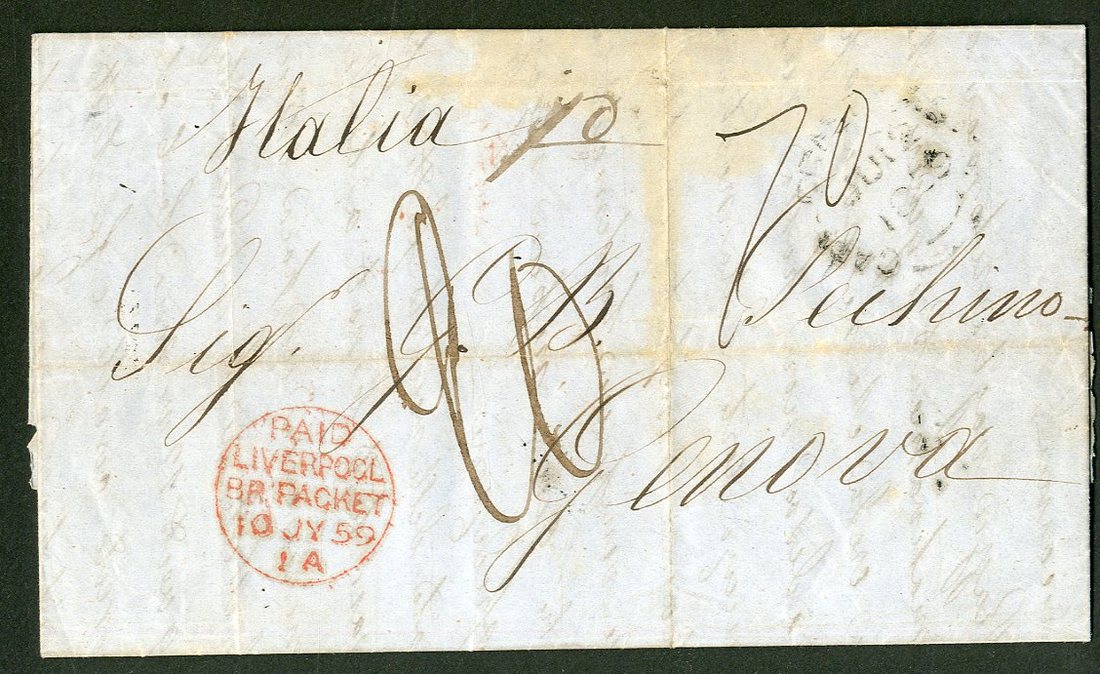 Italia 10
70
Sig. G. B. Pechino
Genova
PAID
LIVERPOOL
BR. PACKET
10 JY 59
1 A